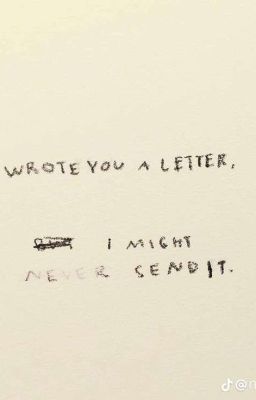 WROTE YOU A LETTER,
I MIGHT
NEVER SEND IT.